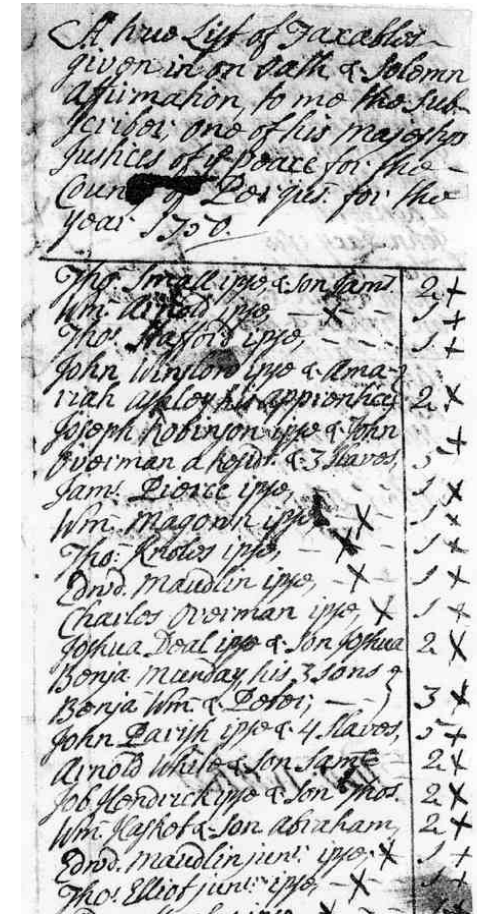 A true List of Taxables
given in on oath & Solemn
Affirmation, to me the Sub-
scriber one of his majestys
Justices of ye peace for the
County of Perqus. for the
year 1750.
Tho. Small ipse & Son Saml 2 x
Wm. Arnold ipse — x — 1 x
Thos. Stafford ipse, 1 x
John Winslow ipse & Ama-
riah his apprentice 2 x
Joseph Robinson ipse & John
Overman a Residt. & 3 Slaves, 5 x
Jams. Pierce ipse, 1 x
Wm. ipse x 1 x
Tho: Knoles ipse, — x — 1 x
Edwd. Maudlin ipse, — x — 1 x
Charles Overman ipse, x 1 x
Joshua Deal ipse & Son Joshua 2 x
Benja. Munday his 3 sons
Benja Wm. & Peter, 3 x
John Parish ipse & 4 Slaves, 5 x
Arnold White & Son Saml 2 x
Job Hendrick ipse & Son Thos. 2 x
Wm. Hasket & Son Abraham, 2 x
Edwd. Maudlin junr. ipse, x 1 x
Thos. Elliot junr. ipse, — x — 1 x